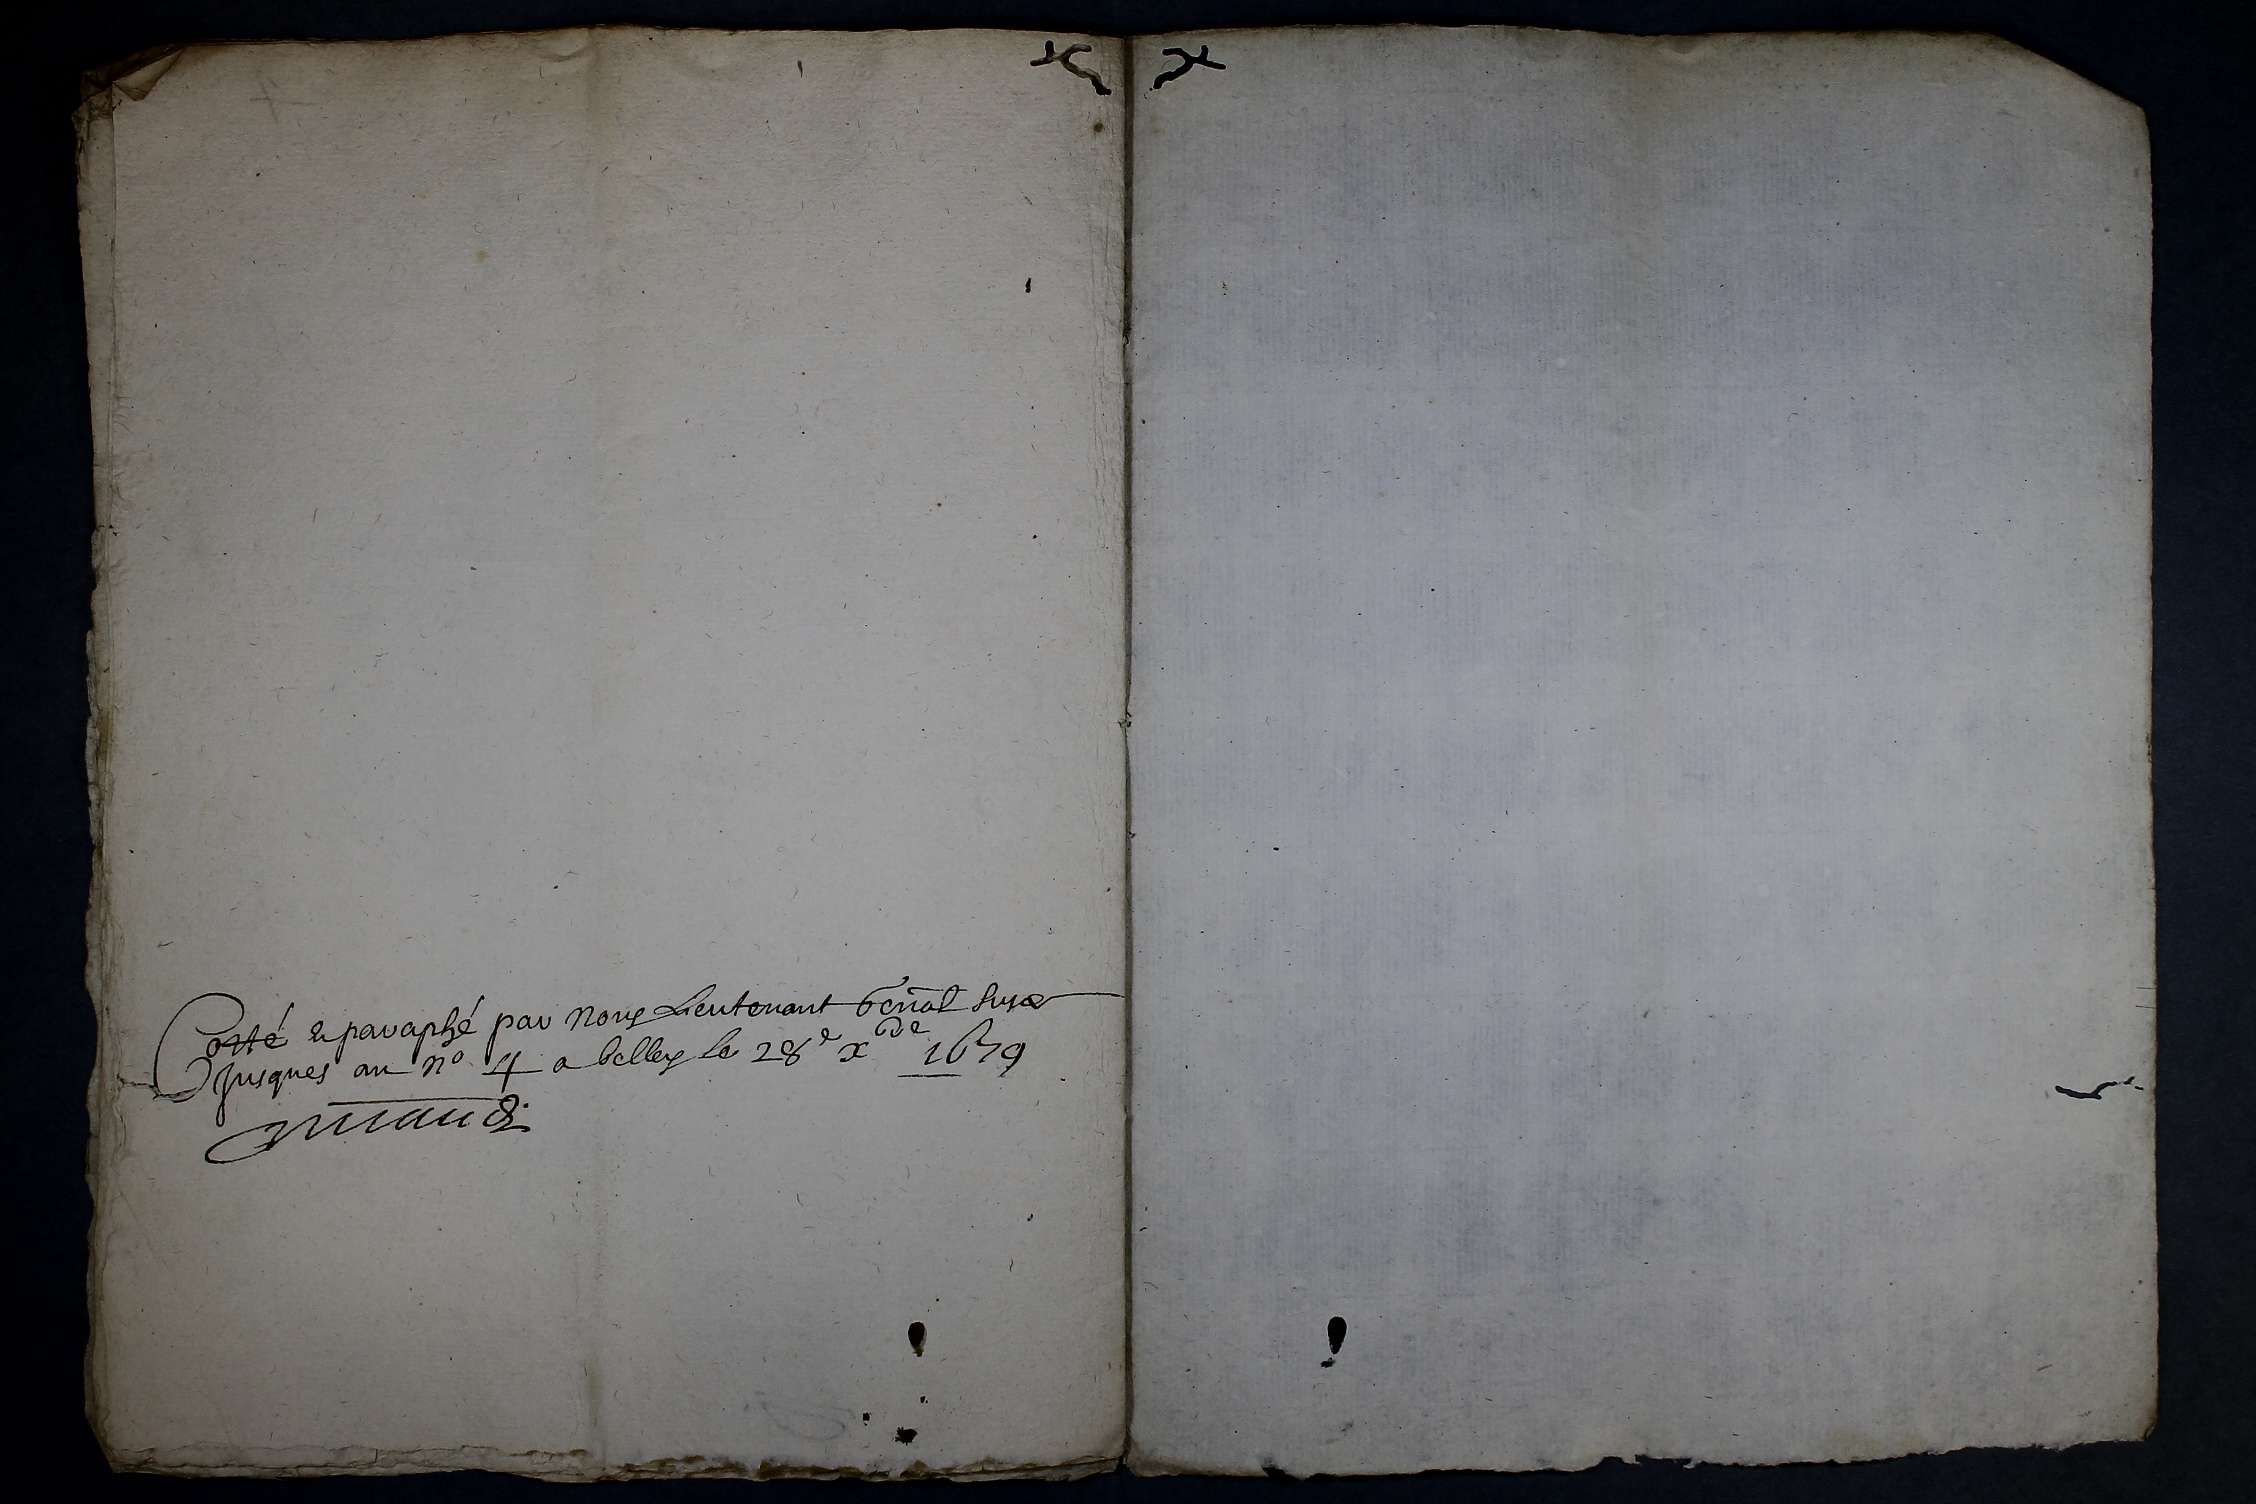 Cotté & paraphé par nous Lieutenant Genal susd
jusques au no 4 a belley le 28e xbre 1679